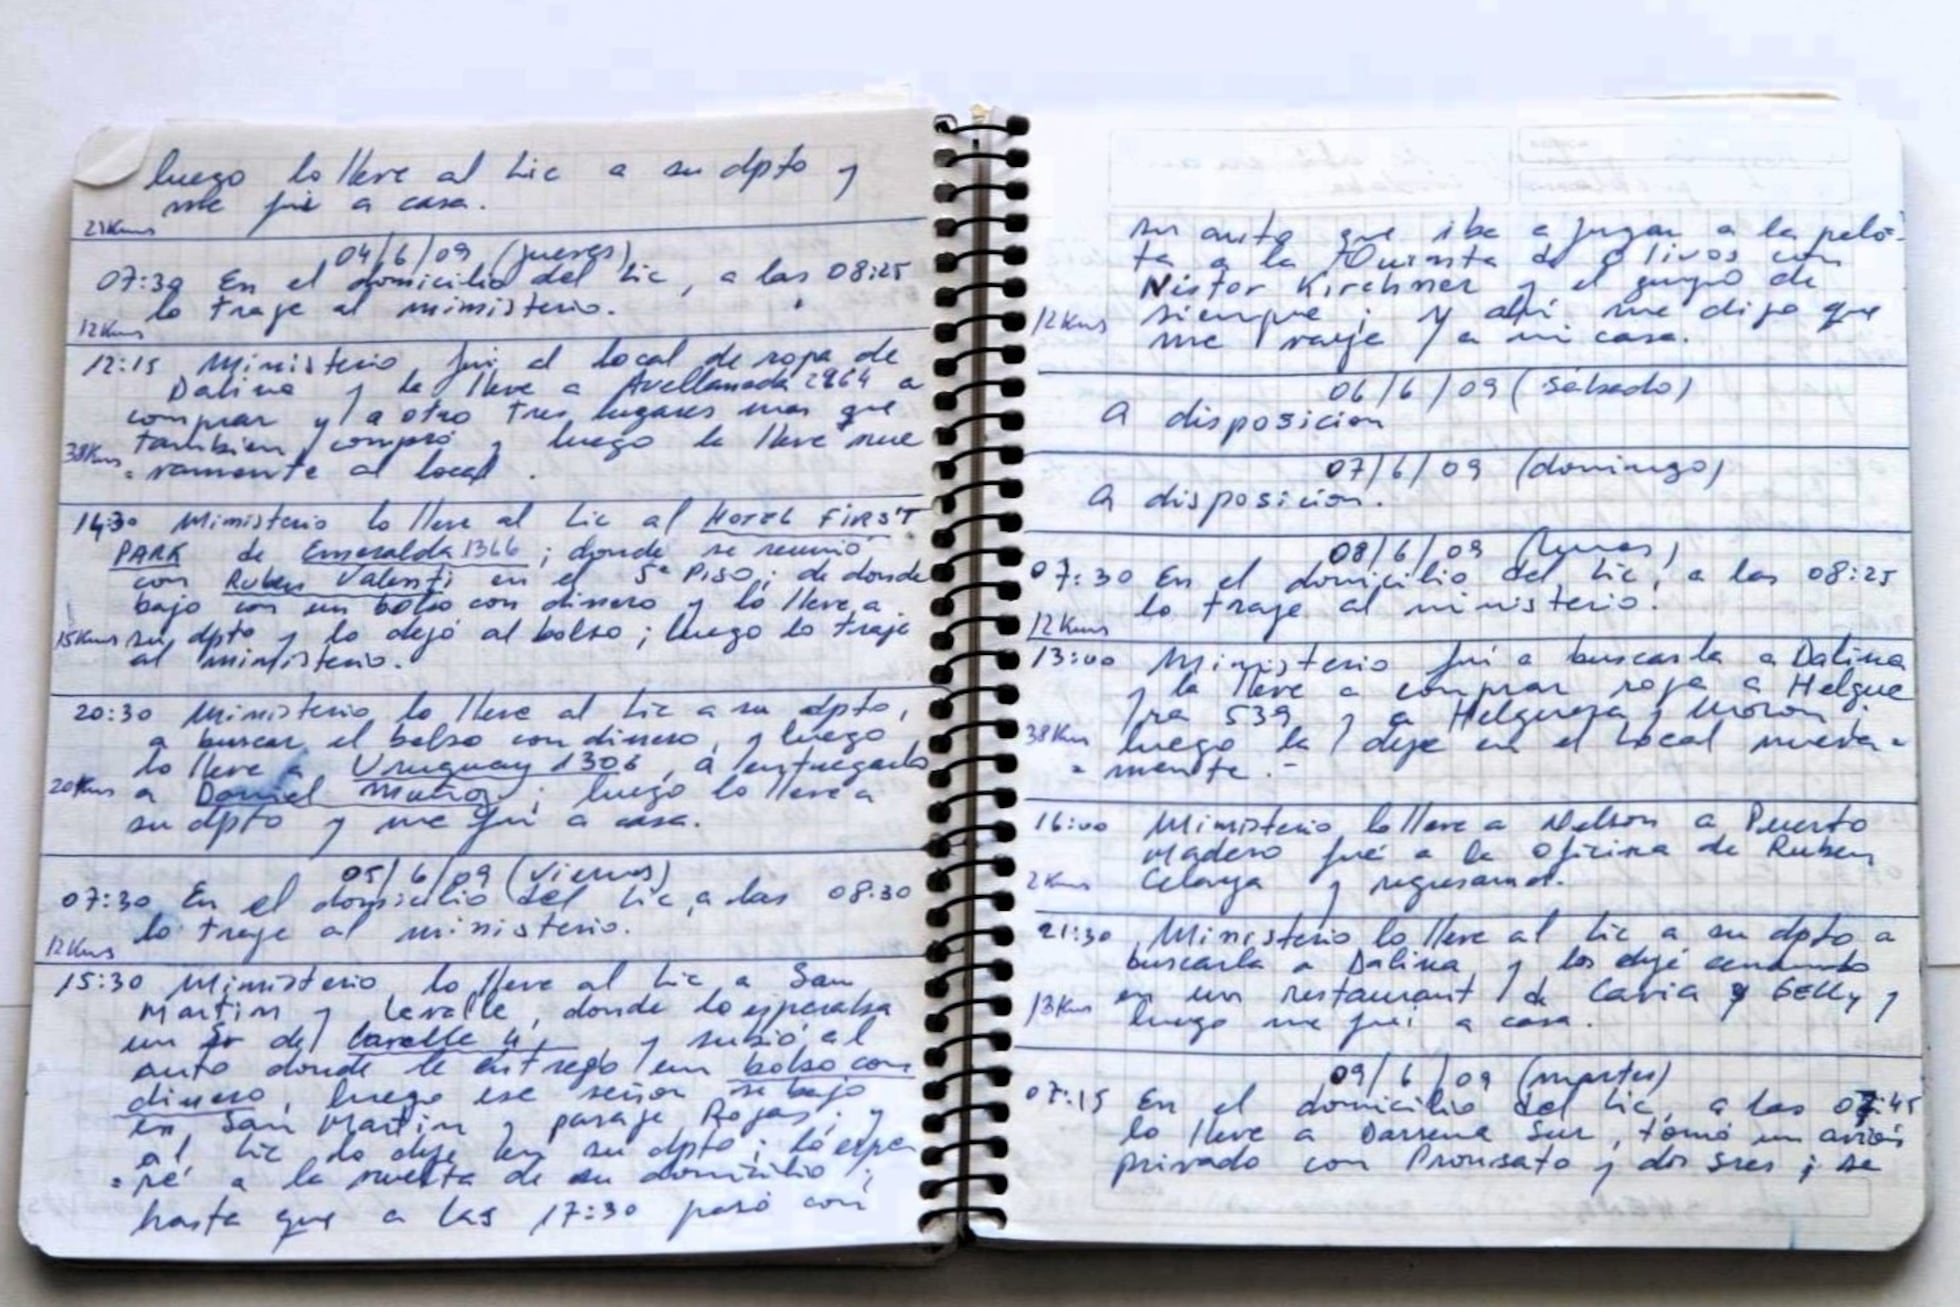 luego lo lleve al Lic a su dpto y
me fui a casa.
23Kms
04/6/09 (jueves)
07:30 En el domicilio del Lic, a las 08:25
lo traje al ministerio.
12Kms
12:15 Ministerio, fui al local de ropa de
Dalina y la lleve a Avellaneda 2964 a
comprar y a otro tres lugares mas que
tambien compró y luego la lleve nue
38Kms
-vamente al local.
14:30 Ministerio lo lleve al Lic al HOTEL FIRST
PARK de Esmeralda 1366; donde se reunió
con Ruben Valenti en el 5º PISO; de donde
bajo con un bolso con dinero y lo lleve a
15Kms su dpto y lo dejó al bolso; luego lo traje
al ministerio.
20:30 Ministerio lo lleve al Lic a su dpto,
a buscar el bolso con dinero, y luego
lo lleve a Uruguay 1306, a entregarlo
20Kms a Daniel Muñoz; luego lo lleve a
su dpto y me fui a casa.
05/6/09 (viernes)
07:30 En el domicilio del Lic, a las 08:30
lo traje al ministerio.
12Kms
15:30 Ministerio lo lleve al Lic a San
Martin y Lavalle, donde lo esperaba
un Sr de Lavalle 4 y subió al
auto donde le entregó un bolso con
dinero, luego ese señor se bajo
en San Martin y pasaje Rojas; y
al Lic lo deje en su dpto; lo espe
-ré a la vuelta de su domicilio;
hasta que a las 17:30 pasó con
su auto que iba a jugar a la pelo-
ta a la Quinta de Olivos con
Nestor Kirchner y el grupo de
12Kms siempre; y ahí me dijo que
me vaya a mi casa.
06/6/09 (sabado)
A disposicion
07/6/09 (domingo)
A disposicion.
08/6/09 (lunes)
07:30 En el domicilio del Lic, a las 08:25
lo traje al ministerio.
12Kms
13:00 Ministerio fui a buscarla a Dalina
y la lleve a comprar ropa a Helgue
ra 539, y a Helguera y Moron;
38Kms luego la deje en el local nueva-
-mente.-
16:00 Ministerio lo lleve a Nelson a Puerto
Madero fué a la oficina de Ruben
2Kms Celaya y regresamos.
21:30 Ministerio lo lleve al Lic a su dpto a
buscarla a Dalina y los dejé cenando
en un restaurant de Cavia y Gelly y
13Kms luego me fui a casa.
09/6/09 (martes)
07:15 En el domicilio del Lic, a las 07:45
lo lleve a Darsena Sur, tomó un avión
privado con Pronsato y dos Sres; se